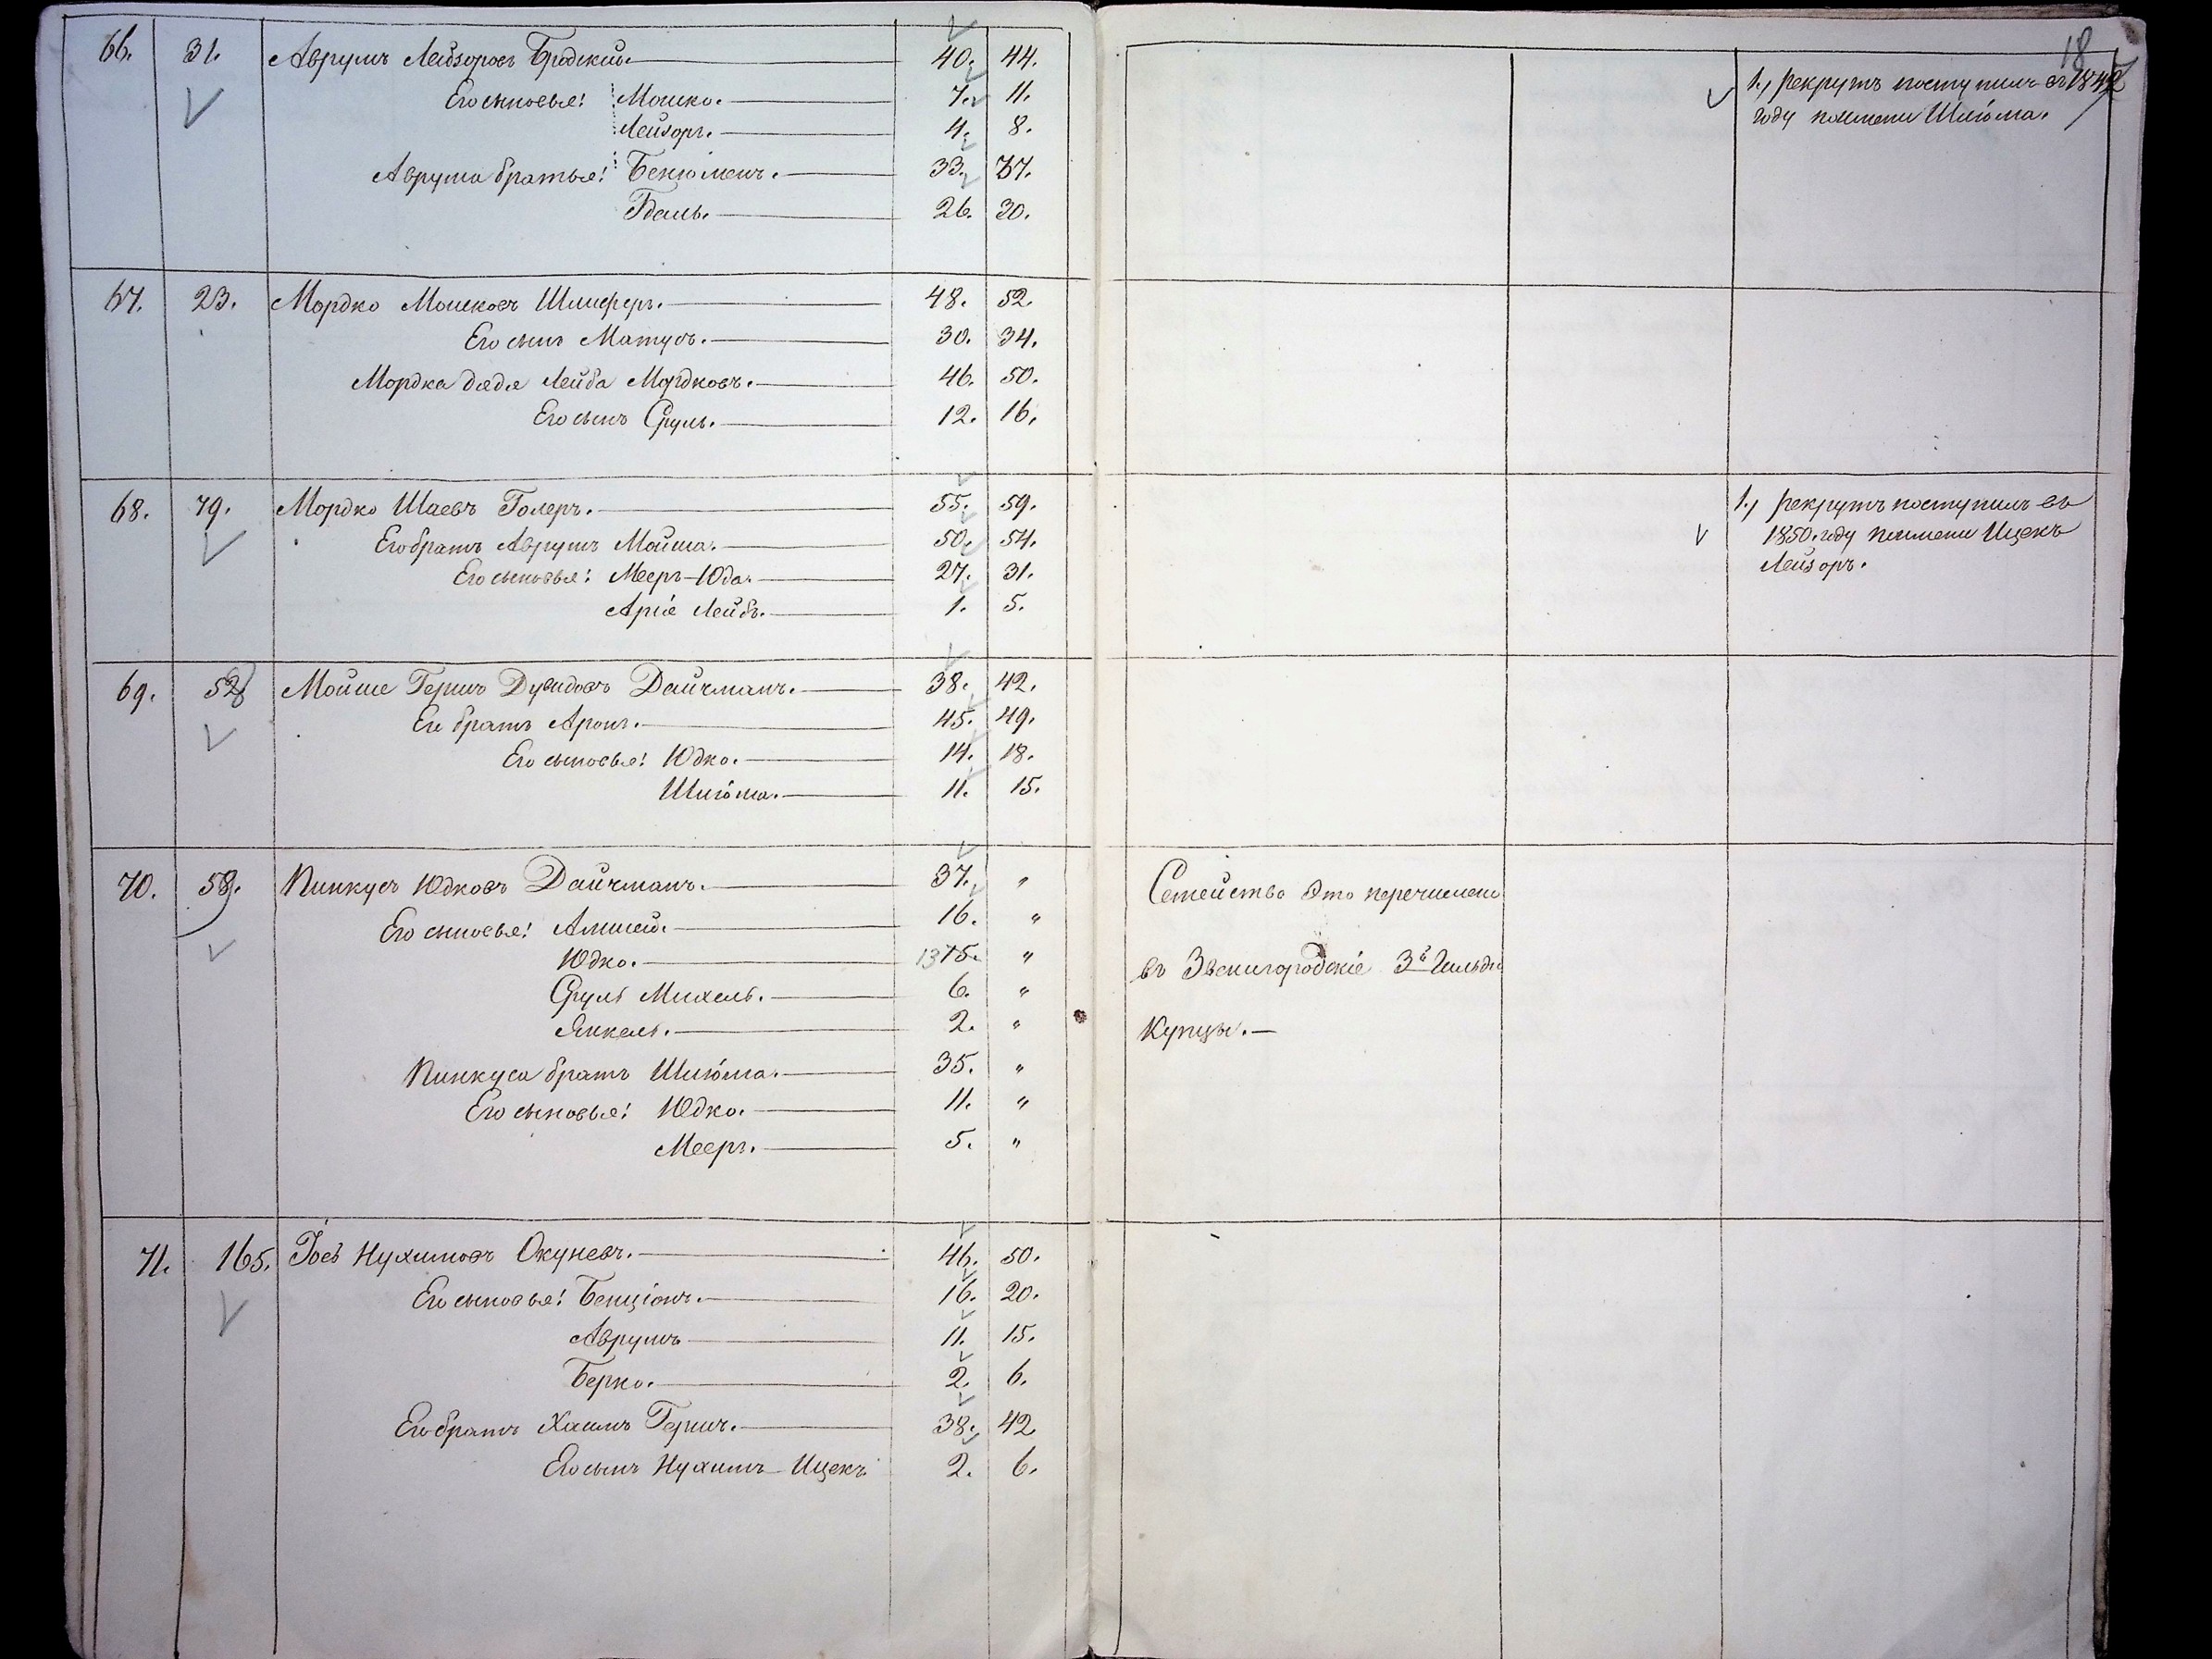 18
66. 31. Аврумъ Лейзоровъ Бродскій. 40. 44.
Его сыновья: Мошко. 7. 11.
Лейзоръ. 4. 8.
Аврума братья: Бенюменъ. 33. 37.
Гдаль. 26. 30.
1., рекрутъ поступилъ въ 1847
году поимени Шліома.
67. 23. Мордко Мошковъ Шлиферъ. 48. 52.
Его сынъ Матусъ. 30. 34.
Мордка дядя Лейба Мордковъ. 46. 50.
Его сынъ Сруль. 12. 16.
68. 79. Мордко Шаевъ Голеръ. 55. 59.
Его братъ Аврумъ Мойша. 50. 54.
Его сыновья: Мееръ-Юда. 27. 31.
Аріе Лейбъ. 1. 5.
1., рекрутъ поступилъ въ
1850. году поимени Ицекъ
Лейзоръ.
69. 52 Мойше Гершъ Дувидовъ Дайчманъ. 38. 42.
Его братъ Аронъ. 45. 49.
Его сыновья: Юдко. 14. 18.
Шліома. 11. 15.
70. 58. Пинкусъ Юдковъ Дайчманъ. 37. "
Его сыновья: Алишей. 16. "
Юдко. 13 15. "
Сруль Михель. 6. "
Янкель. 2. "
Пинкуса братъ Шліома. 35. "
Его сыновья: Юдко. 11. "
Мееръ. 5. "
Семейство это перечислено
въ Звенигородскіе 3й Гильдіи
Купцы. —
71. 165. Іосъ Нухимовъ Окуневъ. 46. 50.
Его сыновья: Бенціонъ. 16. 20.
Аврумъ 11. 15.
Берко. 2. 6.
Его братъ Хаимъ Гершъ. 38. 42
Его сынъ Нухимъ-Ицекъ 2. 6.